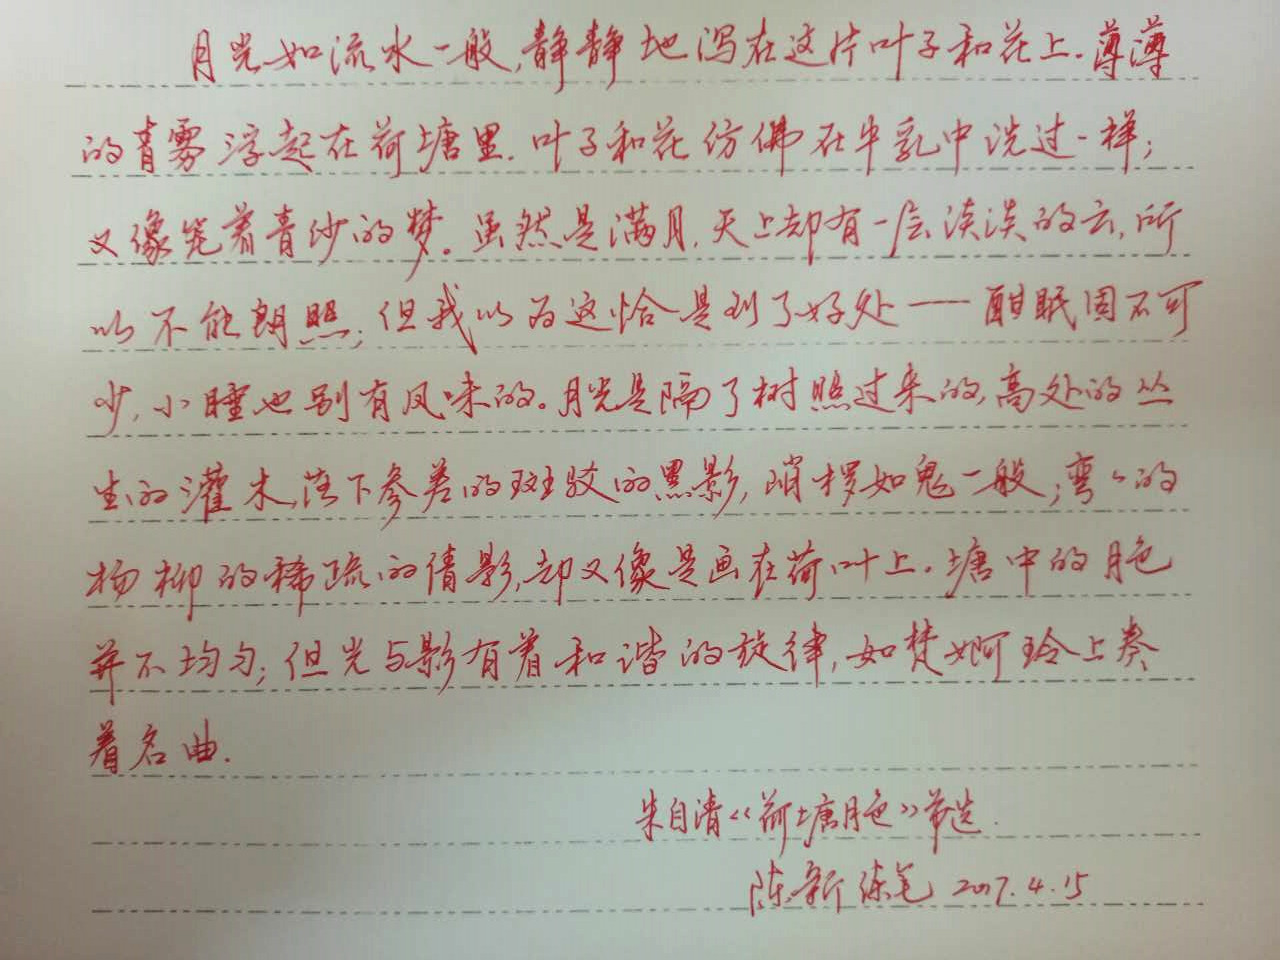 月光如流水一般,静静地泻在这片叶子和花上.薄薄
的青雾浮起在荷塘里.叶子和花仿佛在牛乳中洗过一样;
又像笼着青纱的梦。虽然是满月,天上却有一层淡淡的云,所
以不能朗照;但我以为这恰是到了好处——酣眠固不可
少,小睡也别有风味的。月光是隔了树照过来的,高处的丛
生的灌木,落下参差的斑驳的黑影,峭楞如鬼一般;弯弯的
杨柳的稀疏的倩影,却又像是画在荷叶上。塘中的月色
并不均匀;但光与影有着和谐的旋律,如梵婀玲上奏
着名曲.
朱自清《荷塘月色》节选.
陈新练笔 2017.4.15